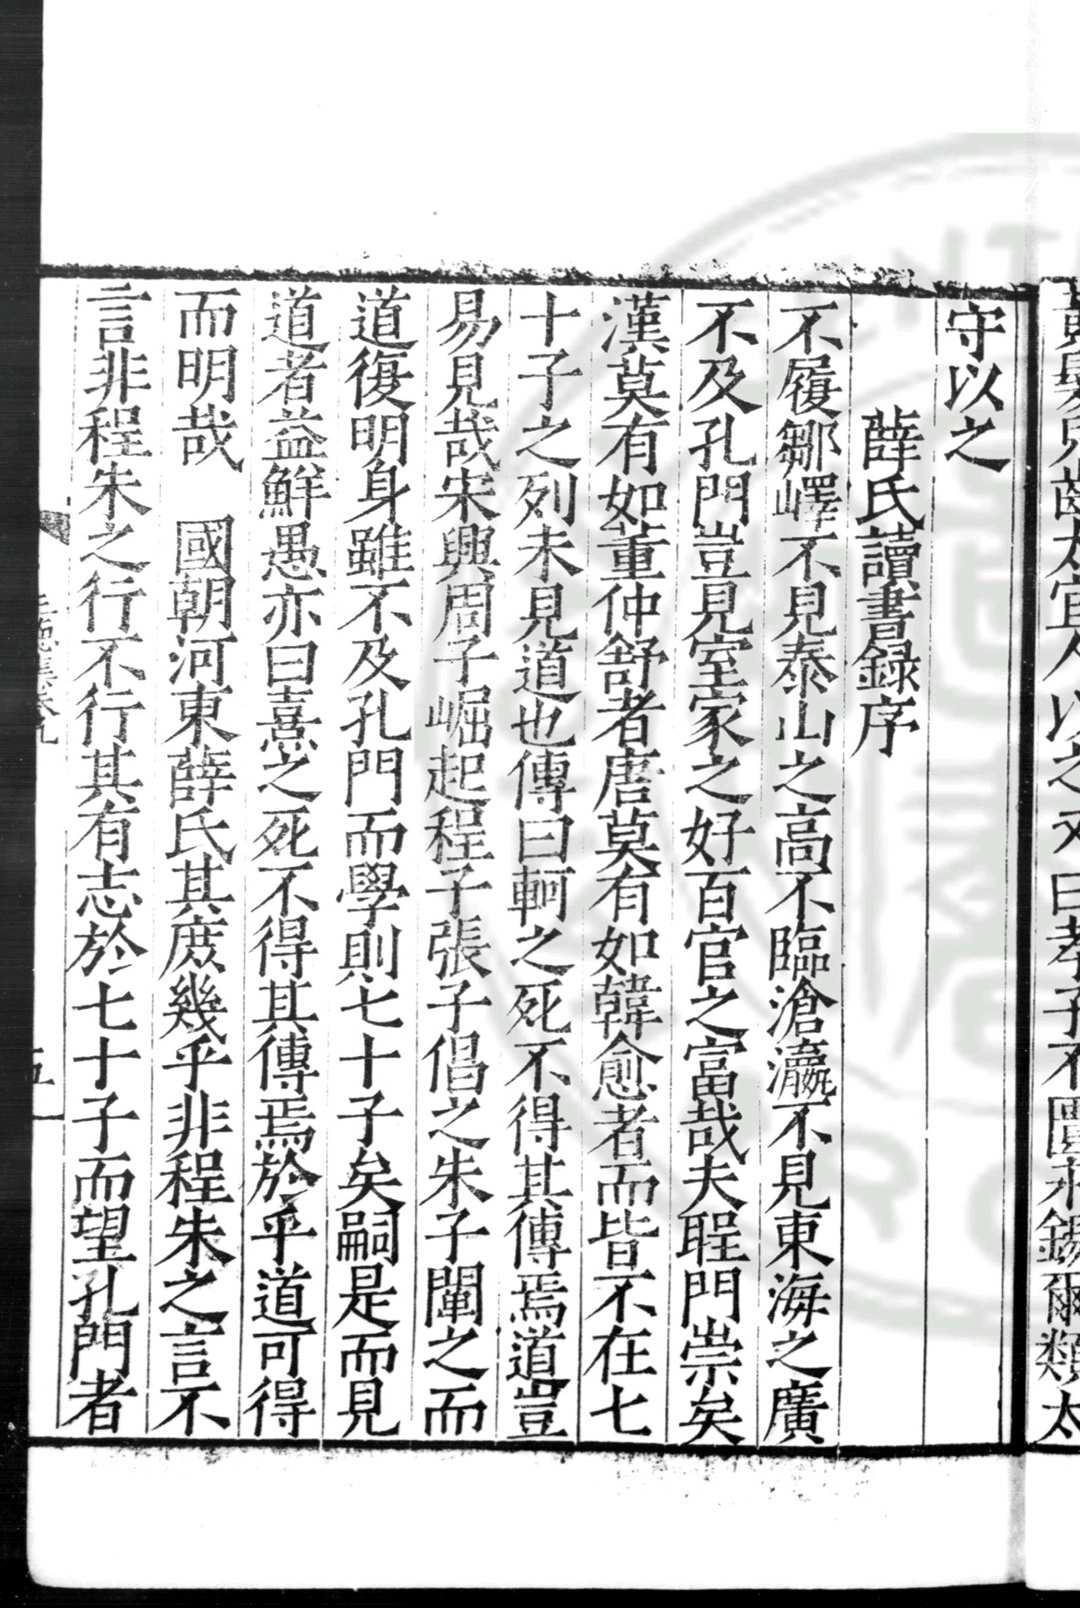 守以之
薛氏讀書錄序
不履鄒嶧不見泰山之高不臨滄瀛不見東海之廣
不及孔門豈見室家之好百官之富哉夫聖門崇矣
漢莫有如董仲舒者唐莫有如韓愈者而皆不在七
十子之列未見道也傳曰軻之死不得其傳焉道豈
易見哉宋興周子崛起程子張子倡之朱子闡之而
道復明身雖不及孔門而學則七十子矣嗣是而見
道者益鮮愚亦曰熹之死不得其傳焉於乎道可得
而明哉　國朝河東薛氏其庶幾乎非程朱之言不
言非程朱之行不行其有志於七十子而望孔門者